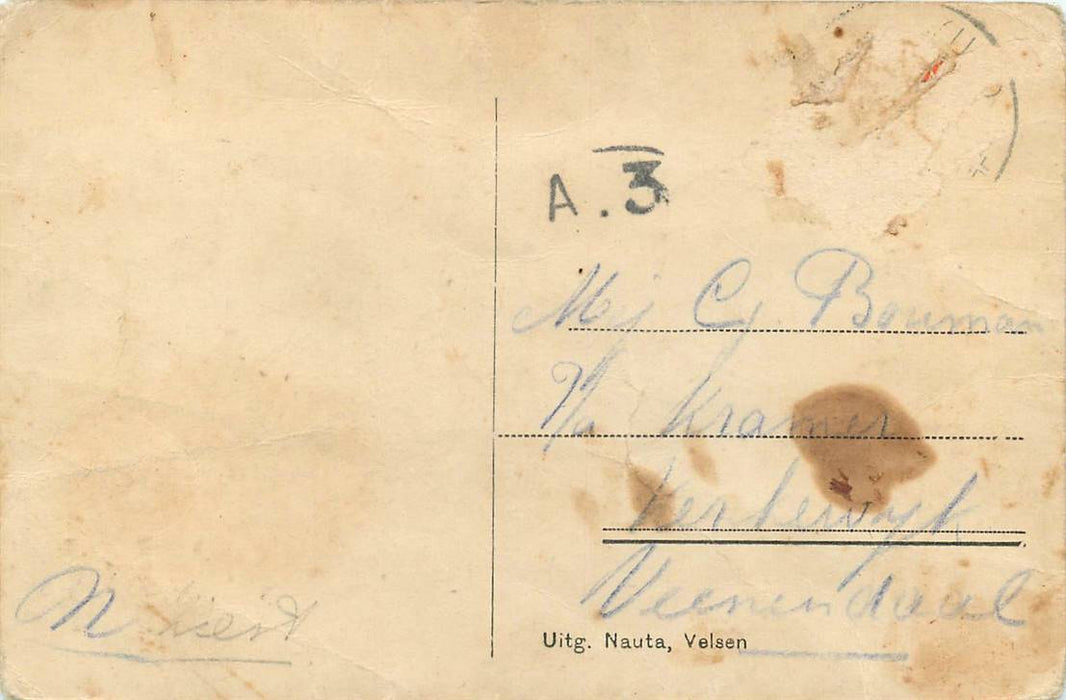 A. 3
Mej Cy Bouman
P/a Kramer
Kerkewijk
Veenendaal
Uitg. Nauta, Velsen
N